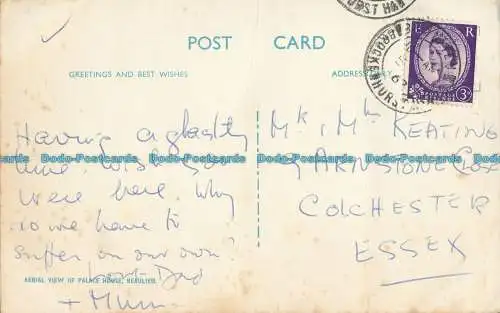 POST CARD
GREETINGS AND BEST WISHES
ADDRESS ONLY
E R
3D
BROCKENHURST
Having a ghastly
time wish you
were here. Why
do we have to
suffer on our own?
Dad
+ Mum
Mr & Mrs KEATING
CLOSE
COLCHESTER
ESSEX
AERIAL VIEW OF PALACE HOUSE, BEAULIEU
Dodo-Postcards Dodo-Postcards Dodo-Postcards Dodo-Postcards Dodo-Postcards